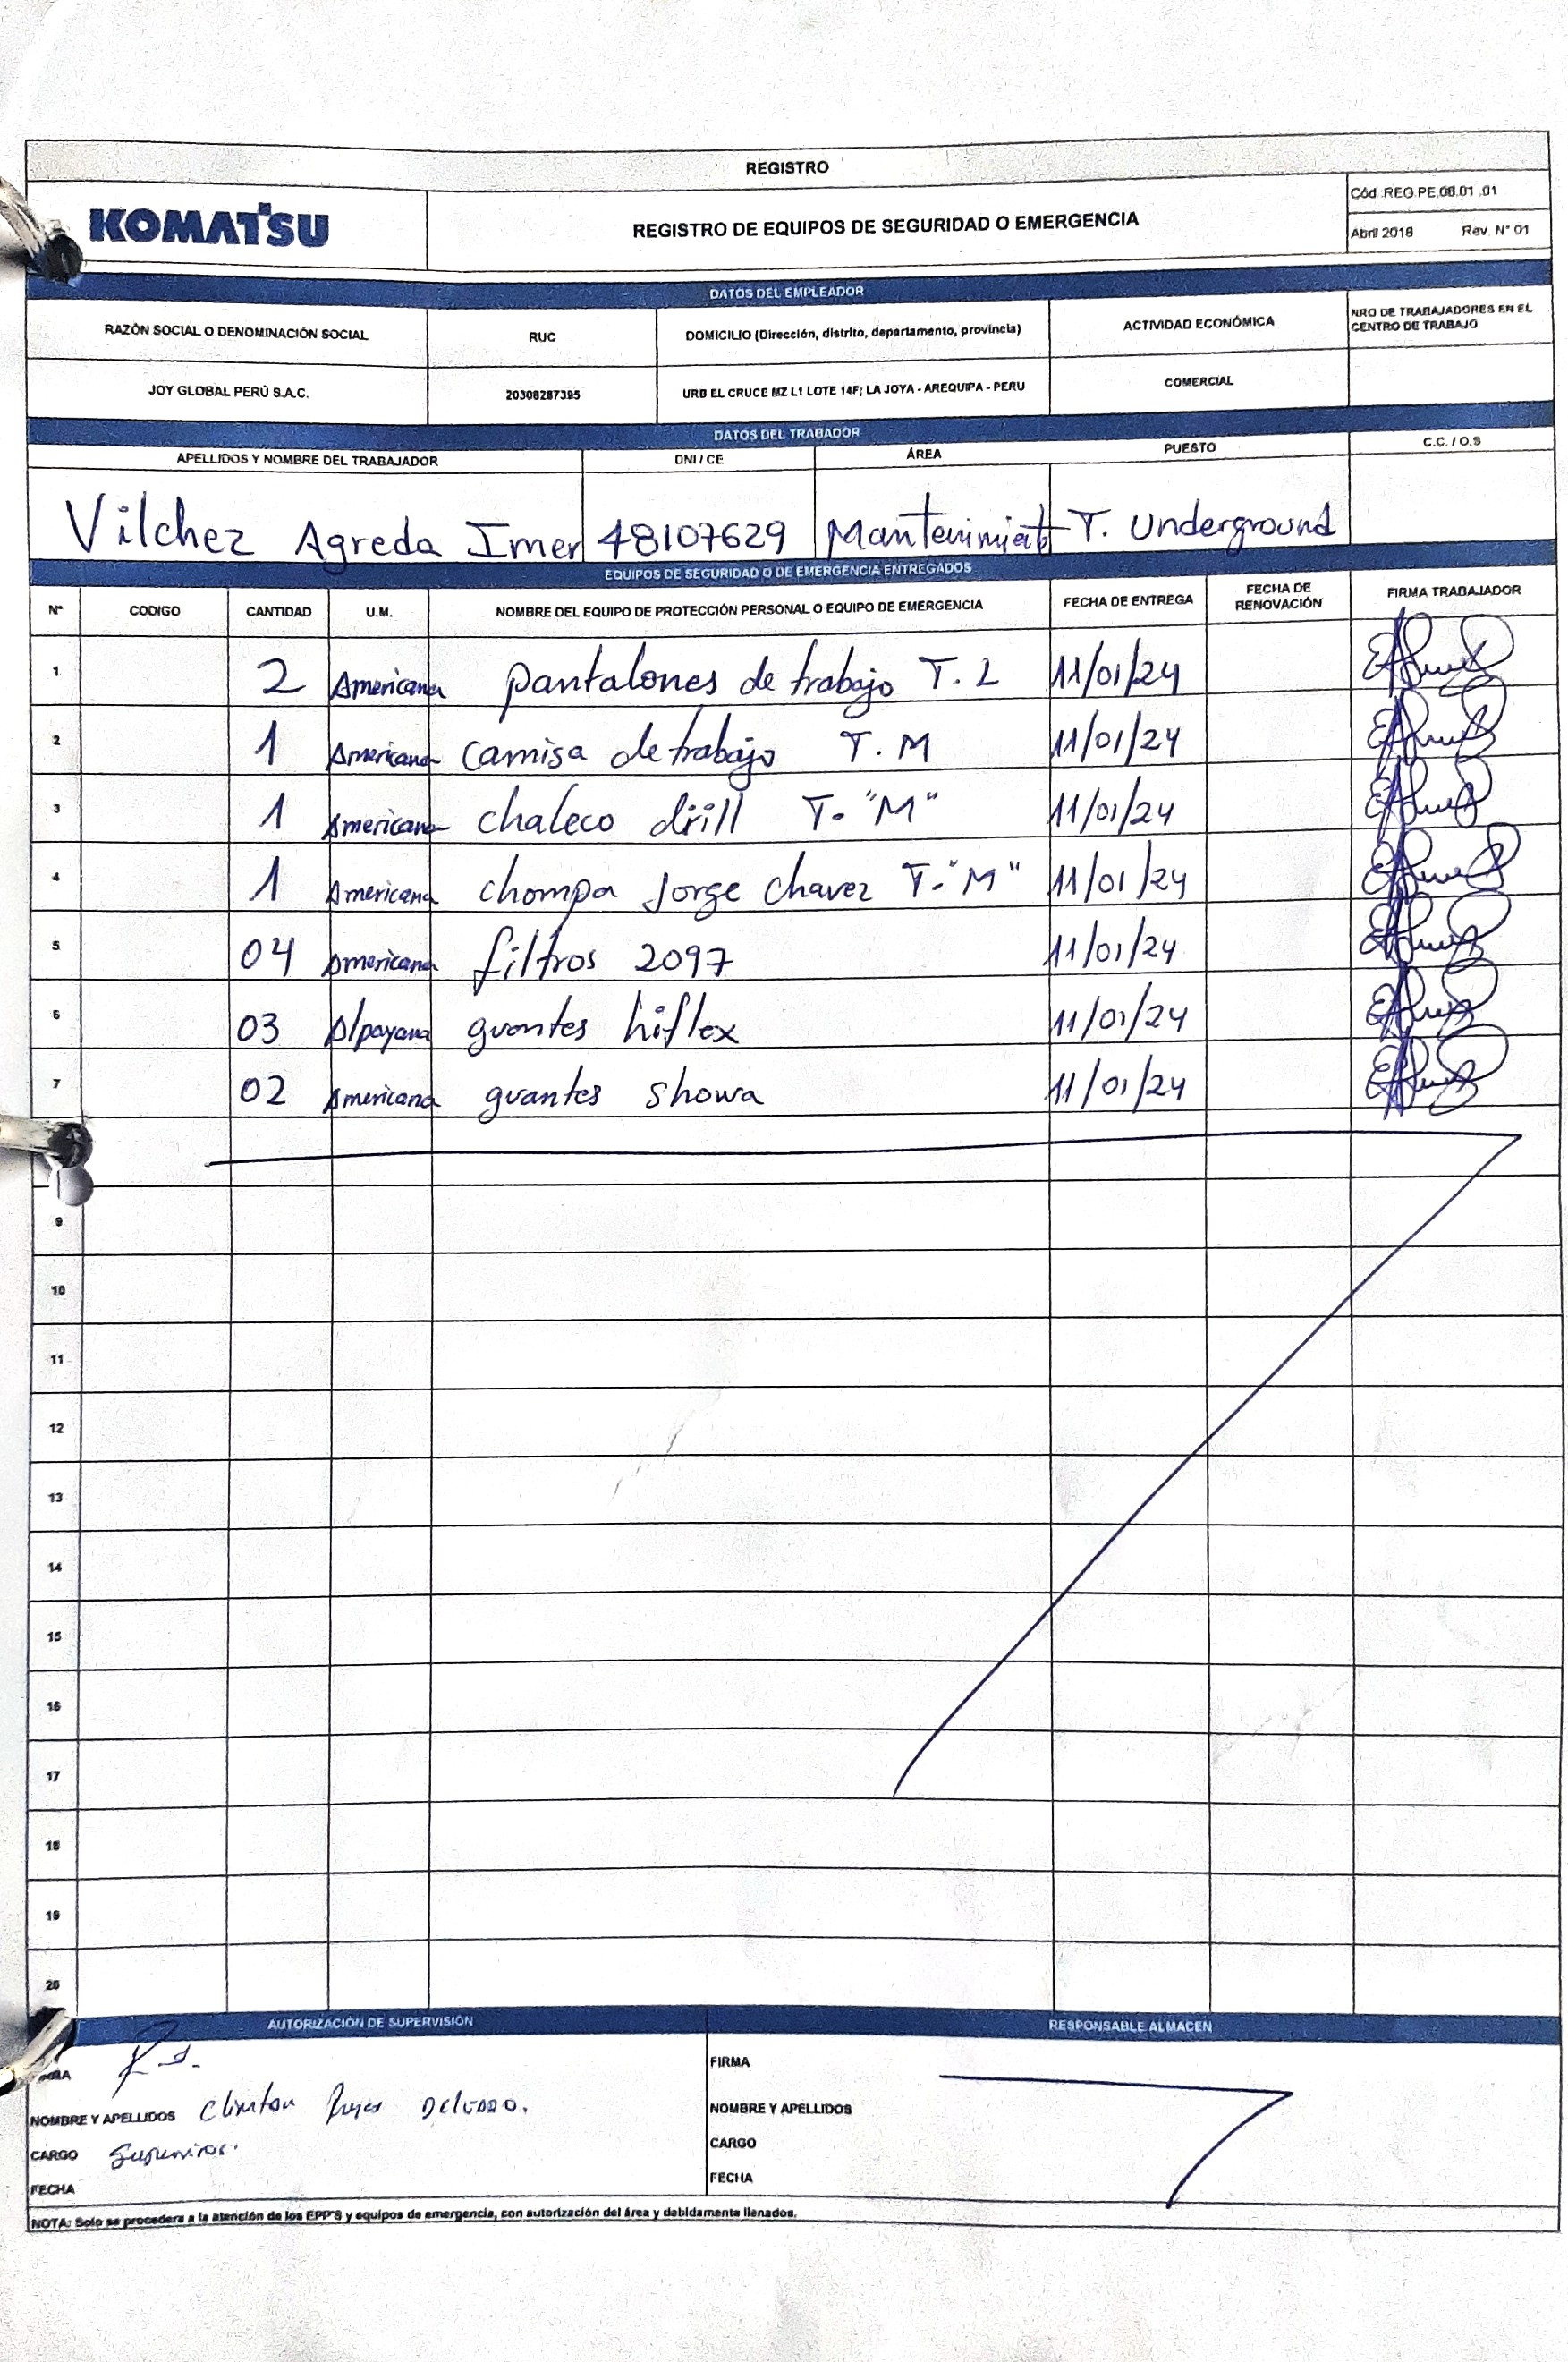 REGISTRO
KOMATSU
REGISTRO DE EQUIPOS DE SEGURIDAD O EMERGENCIA
Cód .REG.PE.08.01 .01
Abril 2018 Rev. N° 01
DATOS DEL EMPLEADOR
RAZÓN SOCIAL O DENOMINACIÓN SOCIAL RUC DOMICILIO (Dirección, distrito, departamento, provincia) ACTIVIDAD ECONÓMICA NRO DE TRABAJADORES EN EL CENTRO DE TRABAJO
JOY GLOBAL PERÚ S.A.C. 20308287395 URB EL CRUCE MZ L1 LOTE 14F; LA JOYA - AREQUIPA - PERU COMERCIAL
DATOS DEL TRABADOR
APELLIDOS Y NOMBRE DEL TRABAJADOR DNI / CE ÁREA PUESTO C.C. / O.S
Vilchez Agreda Imer 48107629 Mantenimiento T. Underground
EQUIPOS DE SEGURIDAD O DE EMERGENCIA ENTREGADOS
N° CODIGO CANTIDAD U.M. NOMBRE DEL EQUIPO DE PROTECCIÓN PERSONAL O EQUIPO DE EMERGENCIA FECHA DE ENTREGA FECHA DE RENOVACIÓN FIRMA TRABAJADOR
1 2 Americana pantalones de trabajo T. L 11/01/24
2 1 Americana camisa de trabajo T. M 11/01/24
3 1 Americana chaleco drill T. "M" 11/01/24
4 1 Americana chompa Jorge chavez T. "M" 11/01/24
5 04 Americana filtros 2097 11/01/24
6 03 Alpayana guantes hiflex 11/01/24
7 02 Americana guantes showa 11/01/24
9
10
11
12
13
14
15
16
17
18
19
20
AUTORIZACIÓN DE SUPERVISIÓN RESPONSABLE ALMACEN
FIRMA
NOMBRE Y APELLIDOS Clinton Delgado. NOMBRE Y APELLIDOS
CARGO Supervisor. CARGO
FECHA FECHA
NOTA: Solo se procedera a la atención de los EPP'S y equipos de emergencia, con autorización del área y debidamente llenados.